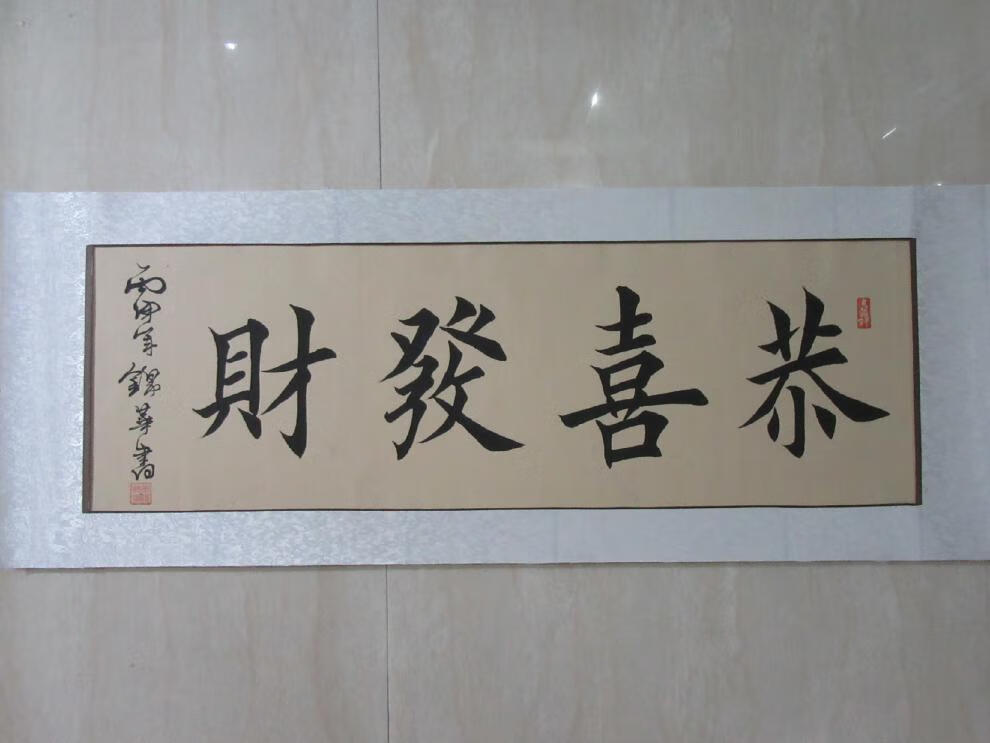 恭喜發財
丙申年錦華書